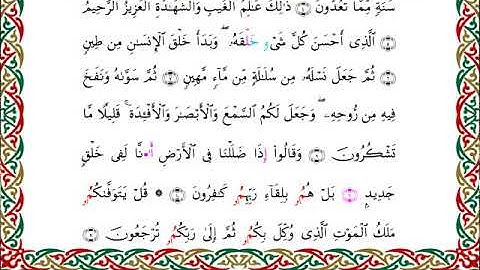 سَنَةٍ مِّمَّا تَعُدُّونَ ۝ ذَٰلِكَ عَٰلِمُ الْغَيْبِ وَالشَّهَٰدَةِ الْعَزِيزُ الرَّحِيمُ
۝ الَّذِي أَحْسَنَ كُلَّ شَيْءٍ خَلْقَهُ ۖ وَبَدَأَ خَلْقَ الْإِنسَٰنِ مِن طِينٍ
۝ ثُمَّ جَعَلَ نَسْلَهُ مِن سُلَٰلَةٍ مِّن مَّآءٍ مَّهِينٍ ۝ ثُمَّ سَوَّىٰهُ وَنَفَخَ
فِيهِ مِن رُّوحِهِۦ ۖ وَجَعَلَ لَكُمُ السَّمْعَ وَالْأَبْصَٰرَ وَالْأَفْـِٔدَةَ ۚ قَلِيلًا مَّا
تَشْكُرُونَ ۝ وَقَالُوٓا۟ إِذَا ضَلَلْنَا فِى الْأَرْضِ أَ•نَّا لَفِى خَلْقٍ
جَدِيدٍ ۝ بَلْ هُمُۥ بِلِقَآءِ رَبِّهِمُۥ كَٰفِرُونَ ۝ ۞ قُلْ يَتَوَفَّىٰكُمُۥ
مَلَكُ الْمَوْتِ الَّذِى وُكِّلَ بِكُمُۥ ثُمَّ إِلَىٰ رَبِّكُمُۥ تُرْجَعُونَ ۝